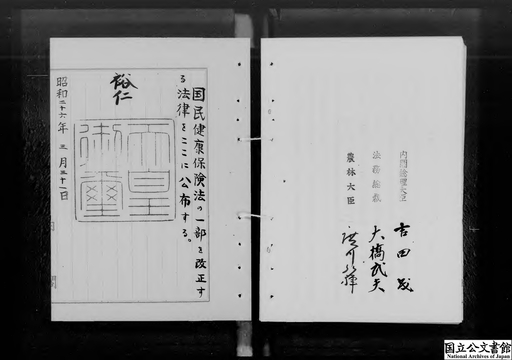 国民健康保険法の一部を改正す
る法律をここに公布する。
裕仁
天皇
御璽
昭和二十六年三月三十一日
内閣
内閣総理大臣 吉田茂
法務総裁 大橋武夫
農林大臣
国立公文書館
National Archives of Japan